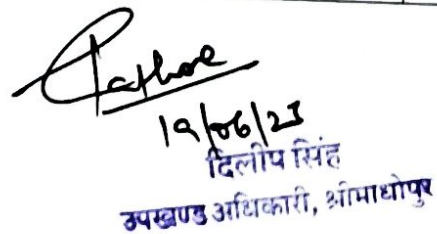 Rathore
19/06/23
दिलीप सिंह
उपखण्ड अधिकारी, श्रीमाधोपुर